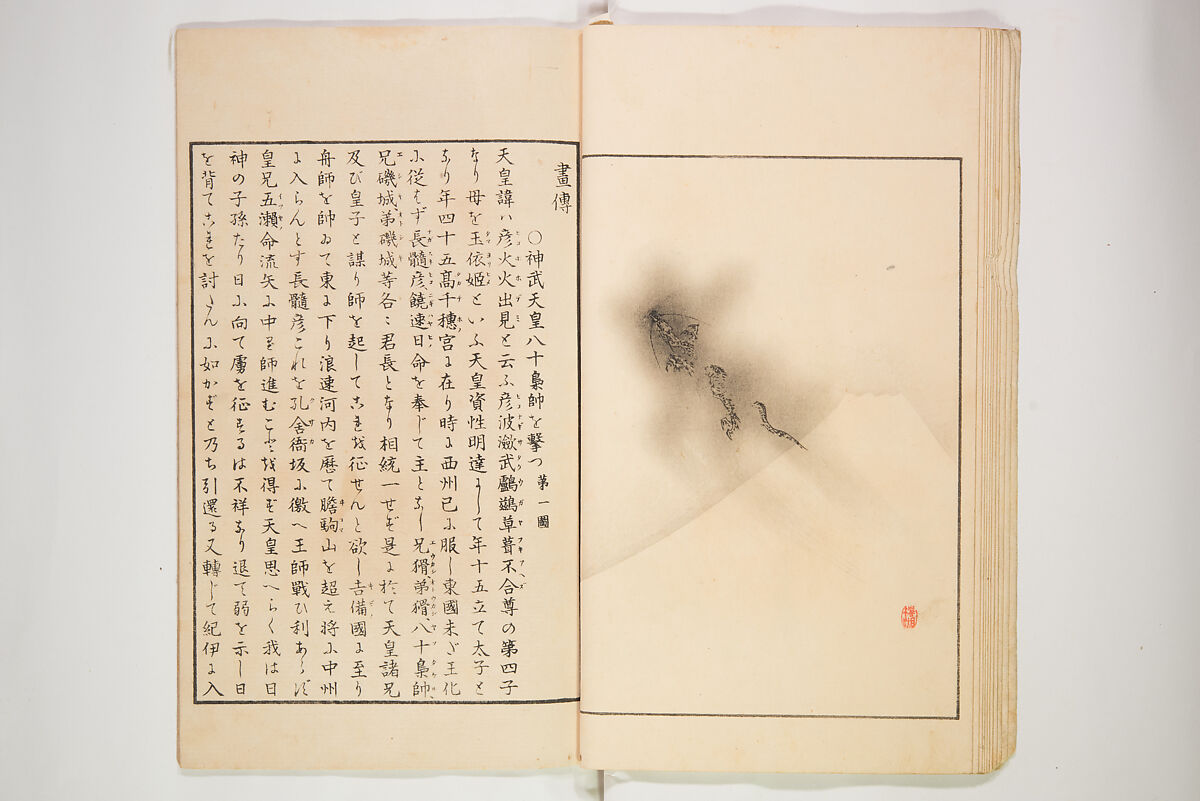 畫傳
〇神武天皇八十梟帥を擊つ 第一圖
天皇諱ハ彦火火出見と云ふ彦波瀲武鸕鷀草葺不合尊の第四子
なり母を玉依姫といふ天皇資性明達にして年十五立て太子と
なり年四十五髙千穗宮に在り時に西州已に服し東國未だ王化
に從はず長髓彦、饒速日命を奉じて主となし兄猾、弟猾、八十梟帥、
兄磯城、弟磯城等各〻君長となり相統一せず是に於て天皇諸兄
及び皇子と謀り師を起してこれを征せんと欲し吉備國に至り
舟師を帥ゐて東に下り浪速河内を歷て膽駒山を超え將に中州
に入らんとす長髓彦これを孔舍衞坂に徼へ王師戰ひ利あらず
皇兄五瀨命流矢に中り師進むこと得ず天皇思へらく我は日
神の子孫たり日に向て虜を征するは不祥なり退て弱を示し日
を背てこれを討たんに如かずと乃ち引還る又轉じて紀伊に入